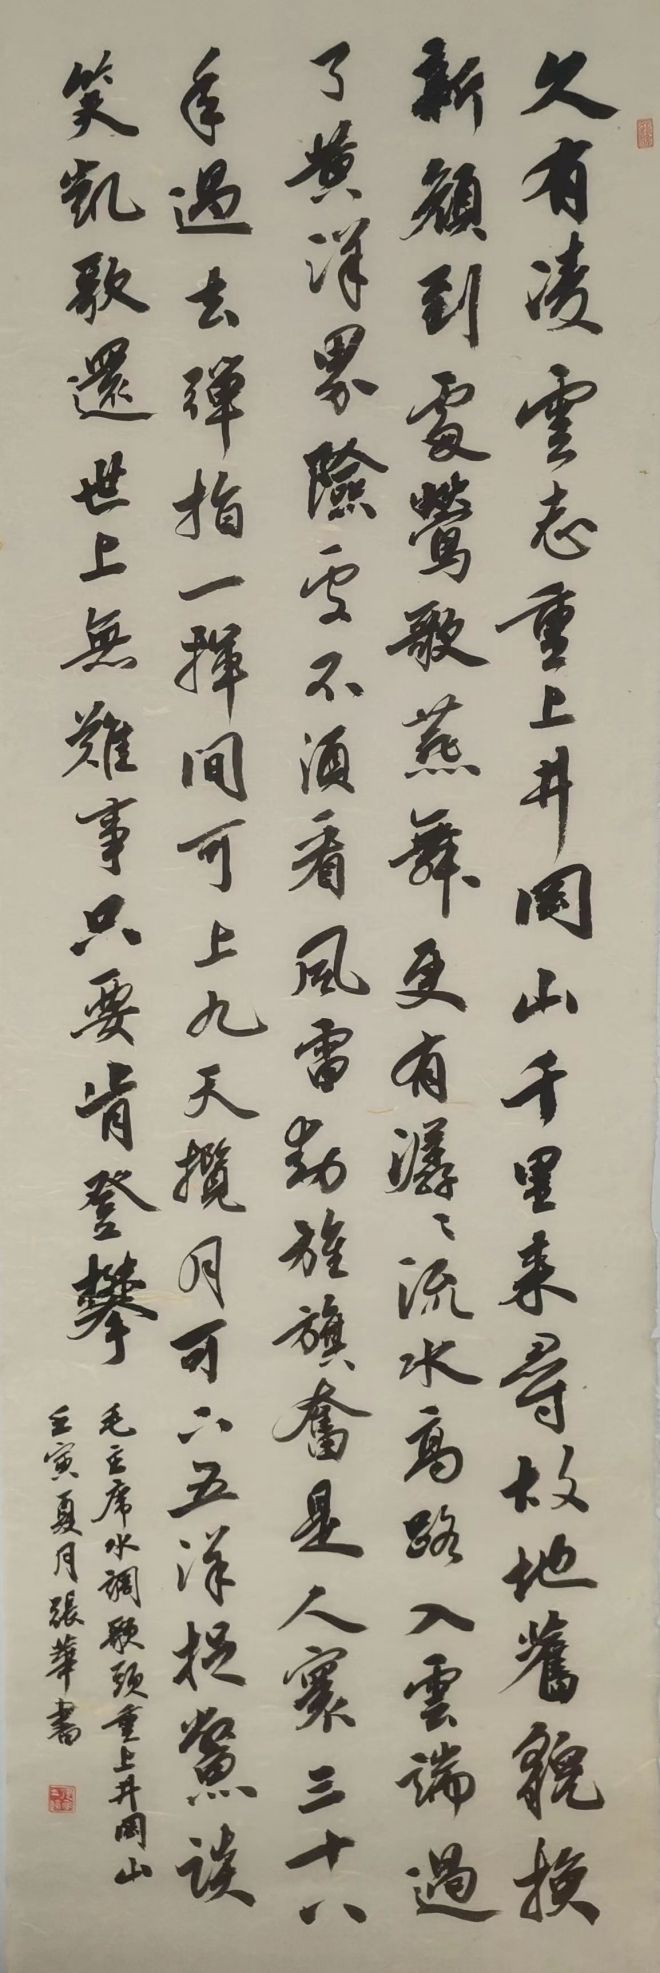 久有凌雲志重上井岡山千里来尋故地舊貌換
新顔到處鶯歌燕舞更有潺〻流水高路入雲端過
了黄洋界險處不須看風雷動旌旗奮是人寰三十八
年過去彈指一揮间可上九天攬月可下五洋捉鱉談
笑凱歌還世上無難事只要肯登攀
毛主席水調歌頭重上井岡山
壬寅夏月張華書